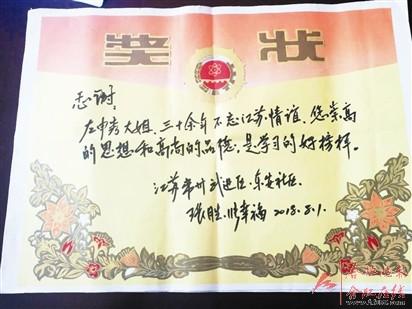 奖状
感谢:
左中秀大姐,三十余年不忘江苏情谊,您崇高
的思想和高尚的品德,是学习的好榜样。
江苏常州武进区·东安社区
张胜 幸福 2018.8.1.